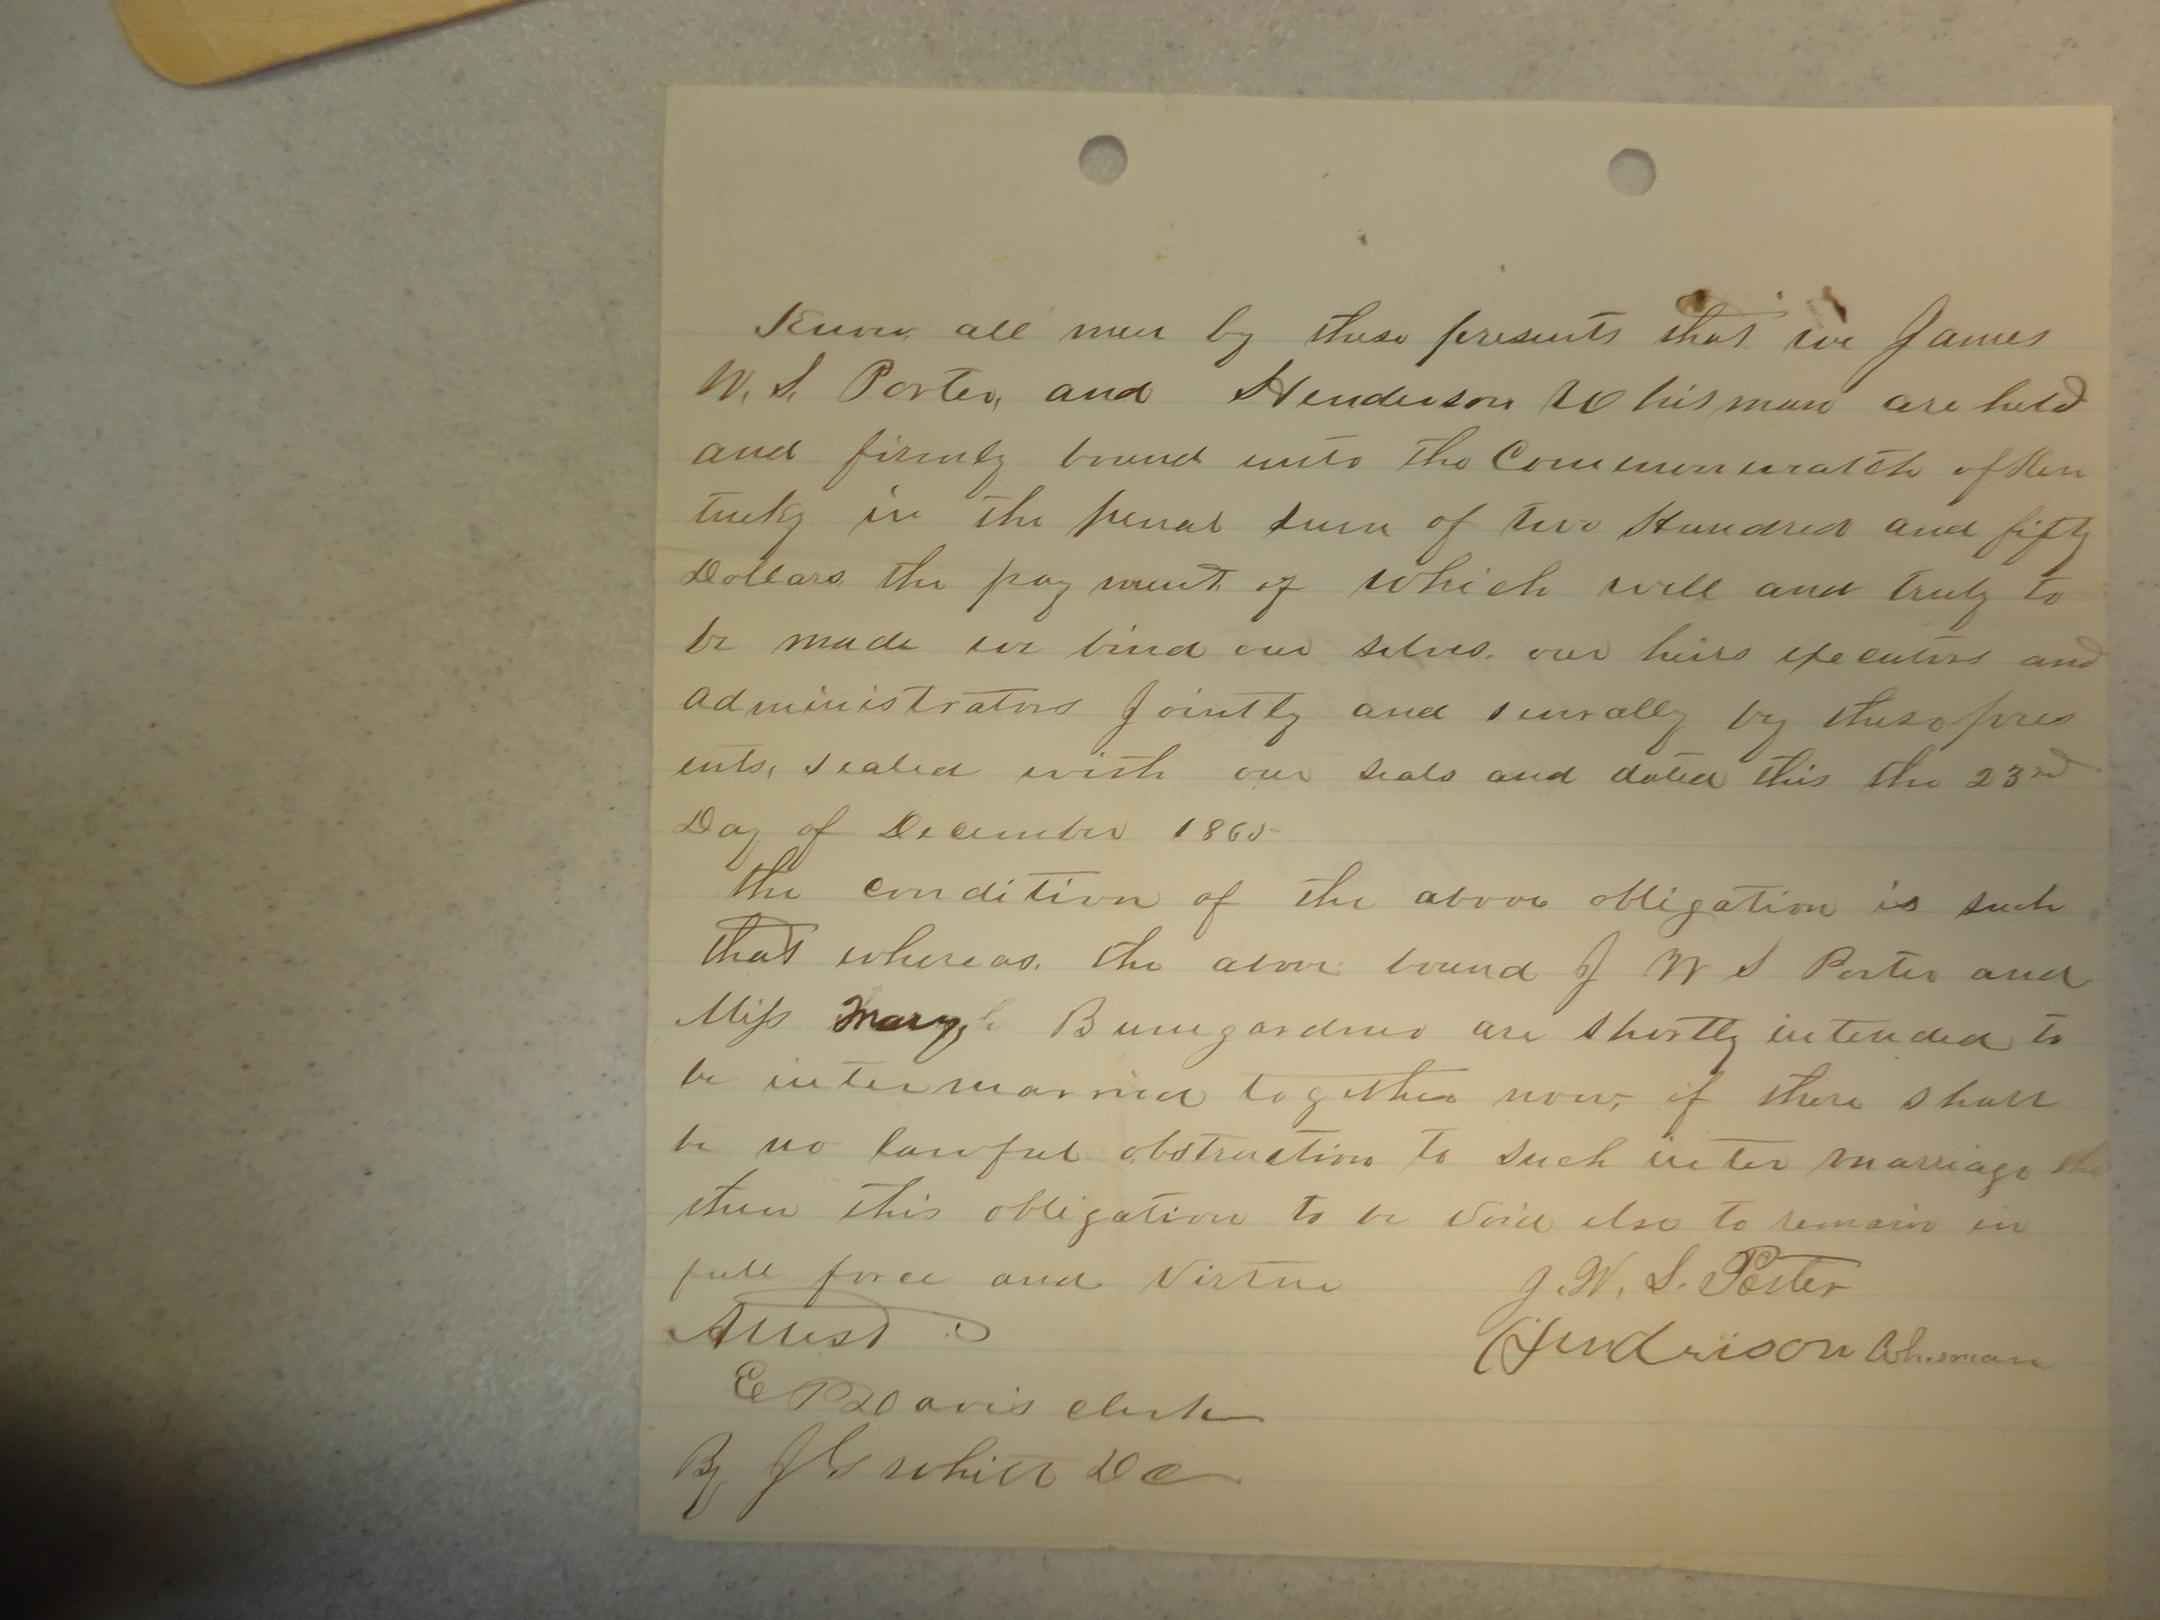 Know all men by these presents that we James
W. S. Porter, and Henderson Whisman are held
and firmly bound unto the Commonwealth of Ken
tucky in the penal sum of two Hundred and fifty
Dollars the pay ment of which well and truly to
be made we bind our selves. our heirs executors and
administrators Jointly and severally by these pres
ents, sealed with our seals and dated this the 23rd
Day of December 1865
the condition of the above obligation is such
that whereas. the above bound J W S Porter and
Miss Mary Bumgardner are shortly intended to
be intermarried together now, if there shall
be no lawful obstruction to such inter marriage the
then this obligation to be void else to remain in
full force and Virtue J. W. S. Porter
Attest Hendrison Whisman
E P Davis Clerk
By J S Whitt DC